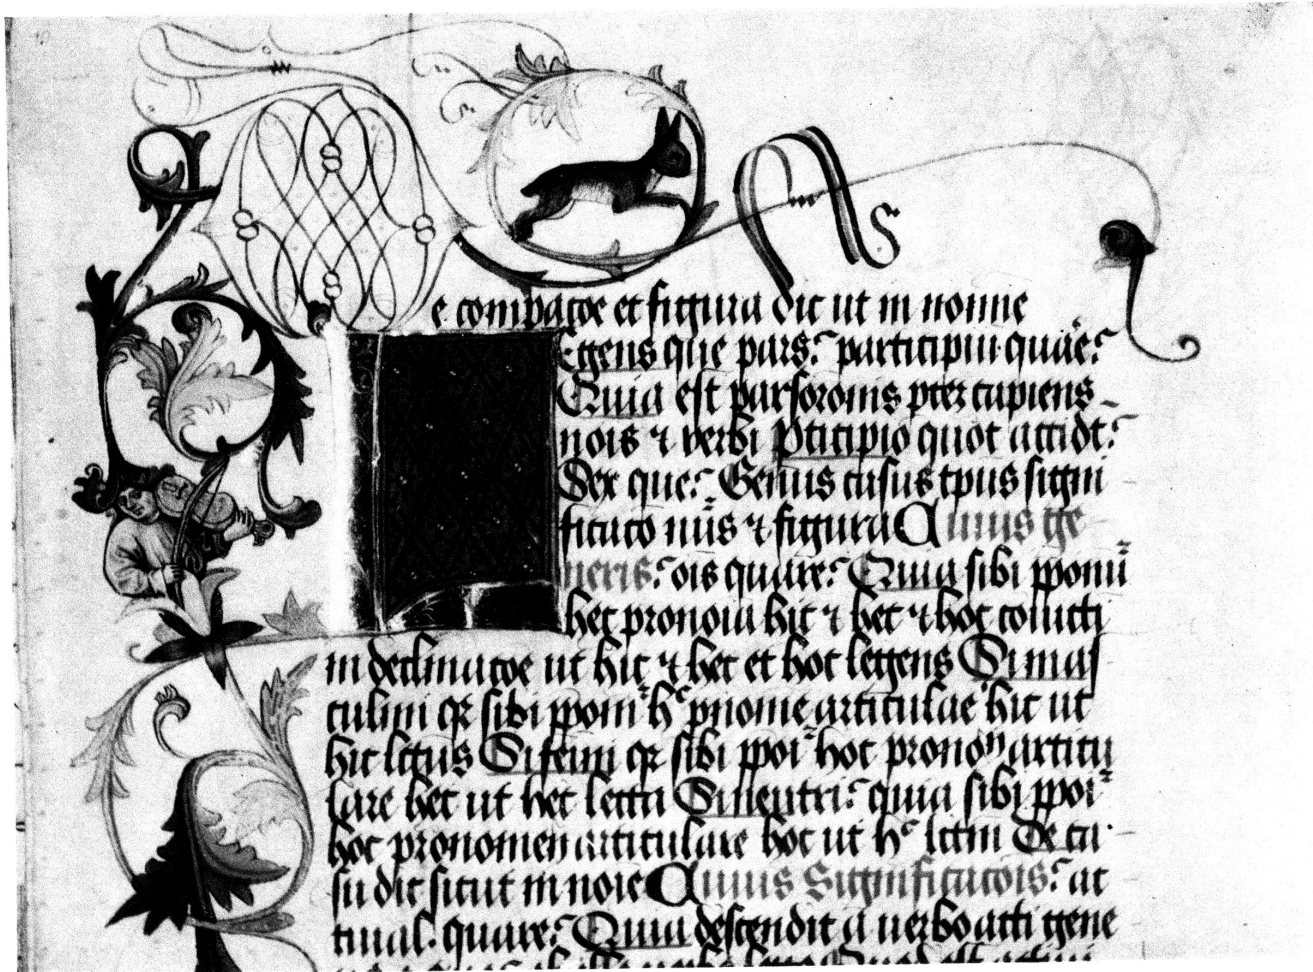 e comparcoe et figura dic ut in nomine
Legens que pars? participiū quare?
Quia est pars oronis ptez capiens
nois ⁊ verbi Pticipio quot accidt?
Sex que? Genus casus tpus signi
ficaco nūs ⁊ figura Cuius ge
neris? ois quare? Quia sibi pponūt
hec pronoīa hic ⁊ hec ⁊ hoc collecti
in declinacoe ut hic ⁊ hec et hoc legens Si mas
culini qr sibi pponit hc pnomē articulae hic ut
hic lctus Si femi qr sibi ppoit hoc pronon articu
lare hec ut hec lecta Si neutri? quia sibi ppoit
hoc pronomen articulare hoc ut hc lctm De ca
su dic sicut in noie Cuius Significacois? ac
tiual. quare? Quia descendit a uerbo acti gene